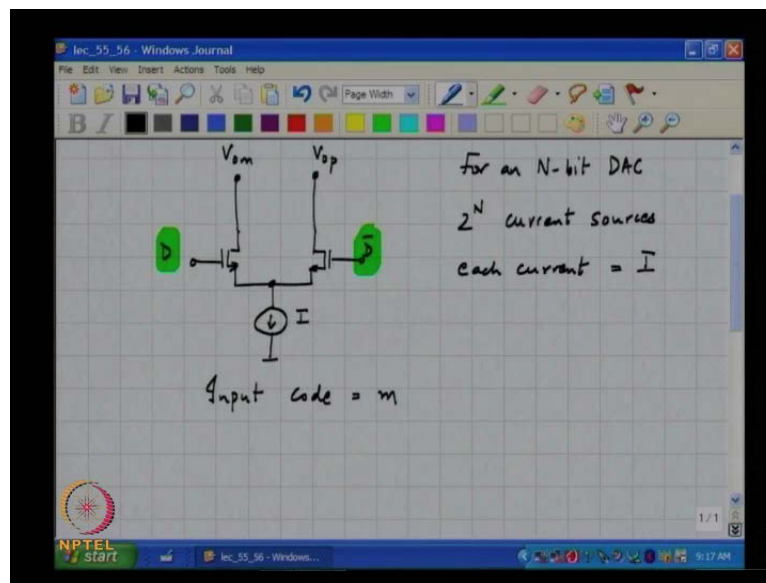 lec_55_56 - Windows Journal
File Edit View Insert Actions Tools Help
Page Width
B I
Vom Vop
D D̅
I
Input code = m
For an N-bit DAC
2^N current sources
each current = I
1/1
NPTEL
start
lec_55_56 - Windows...
9:17 AM